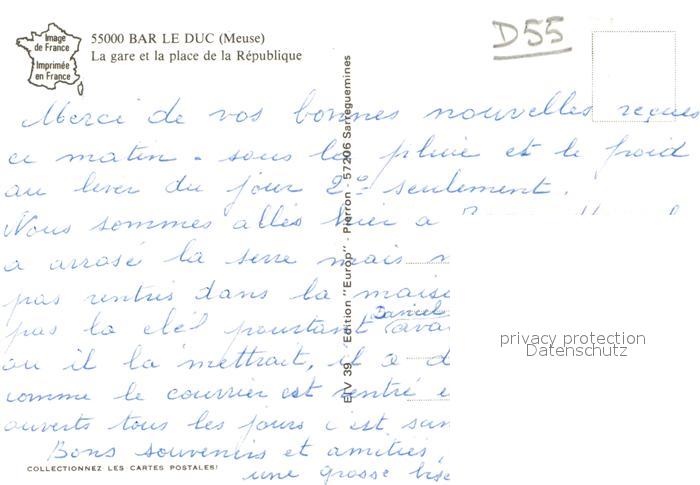 Image
de France
Imprimée
en France
55000 BAR LE DUC (Meuse)
La gare et la place de la République
D55
Merci de vos bonnes nouvelles reçues
ce matin - sous la pluie et le froid
au lever du jour 2° seulement.
Nous sommes allés hier a
a arrosé la serre mais
pas rentrés dans la
pas la clé! pourtant Daniel
ou il la mettrait, il a
comme le courrier est rentré
ouverts tous les jours c'est
Bons souvenirs et amitiés,
une grosse
COLLECTIONNEZ LES CARTES POSTALES!
E/V 39 - Edition "Europ" - Pierron - 57206 Sarreguemines
privacy protection
Datenschutz